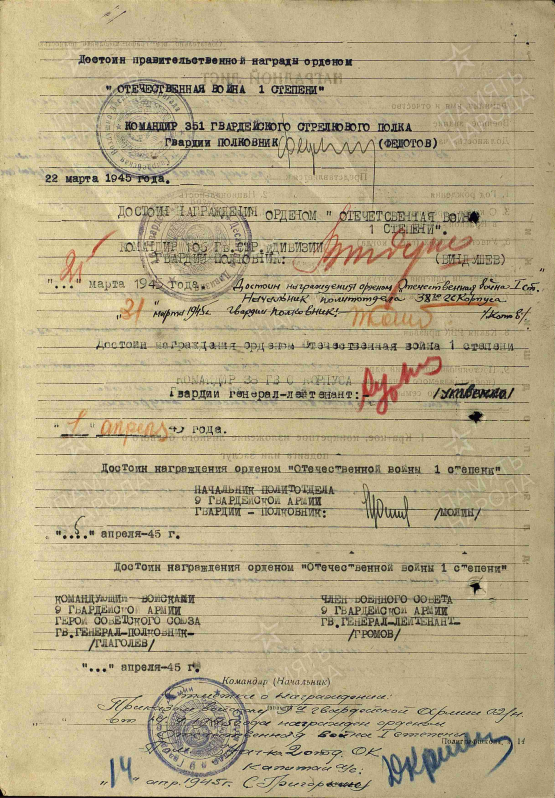 Достоин правительственной награды орденом
"ОТЕЧЕСТВЕННАЯ ВОЙНА 1 СТЕПЕНИ"
КОМАНДИР 351 ГВАРДЕЙСКОГО СТРЕЛКОВОГО ПОЛКА
Гвардии ПОЛКОВНИК (ФЕДОТОВ)
22 марта 1945 года.
ДОСТОИН НАГРАЖДЕНИЯ ОРДЕНОМ "ОТЕЧЕТСВЕННАЯ ВОЙНА
1 СТЕПЕНИ".
КОМАНДИР 106 ГВ.СТР.ДИВИЗИИ
ГВАРДИИ-ПОЛКОВНИК: (ВИНДУШЕВ)
"25" марта 1945 года.
Достоин награждения орденом Отечественная война I ст.
Начальник политотдела 38 гв. ск Корпуса
"31" марта 1945г гвардии полковник:
Достоин награждения орденом Отечественная война 1 степени
КОМАНДИР 38 ГВ С КОРПУСА
Гвардии генерал-лейтенант:- /Утвенко/
"1" апреля 45 года.
Достоин награждения орденом "Отечественной войны 1 степени"
НАЧАЛЬНИК ПОЛИТОТДЕЛА
9 ГВАРДЕЙСКОЙ АРМИИ
ГВАРДИИ - ПОЛКОВНИК: /МОЛИН/
апреля-45 г.
Достоин награждения орденом "Отечественной войны 1 степени"
КОМАНДУЮЩИЙ ВОЙСКАМИ
9 ГВАРДЕЙСКОЙ АРМИИ
ГЕРОЙ СОВЕТСКОГО СОЮЗА
ГВ.ГЕНЕРАЛ-ПОЛКОВНИК-
/ГЛАГОЛЕВ/
ЧЛЕН ВОЕННОГО СОВЕТА
9 ГВАРДЕЙСКОЙ АРМИИ
ГВ.ГЕНЕРАЛ-ЛЕЙТЕНАНТ-
/ГРОМОВ/
"..." апреля-45 г.
Командир (Начальник)
Отметка о награждении:
Приказом войскам 9 гвардейской Армии
1945 года награжден орденом
Отечественная война I степени
отд. ОК
капитан
14 апр. 1945г.
14